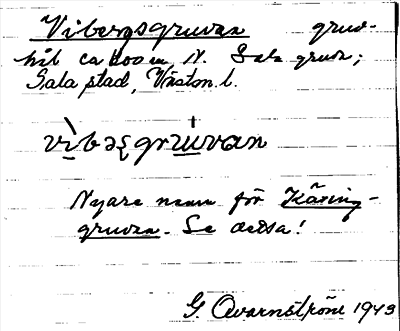 Vibergsgruvan gruv-
hål ca 600 m N. Sala gruva;
Sala stad, Västm. l.
vìbəʂgruvan
Nyare namn för Käring-
gruvan. Se detta!
G. Qvarnström 1943